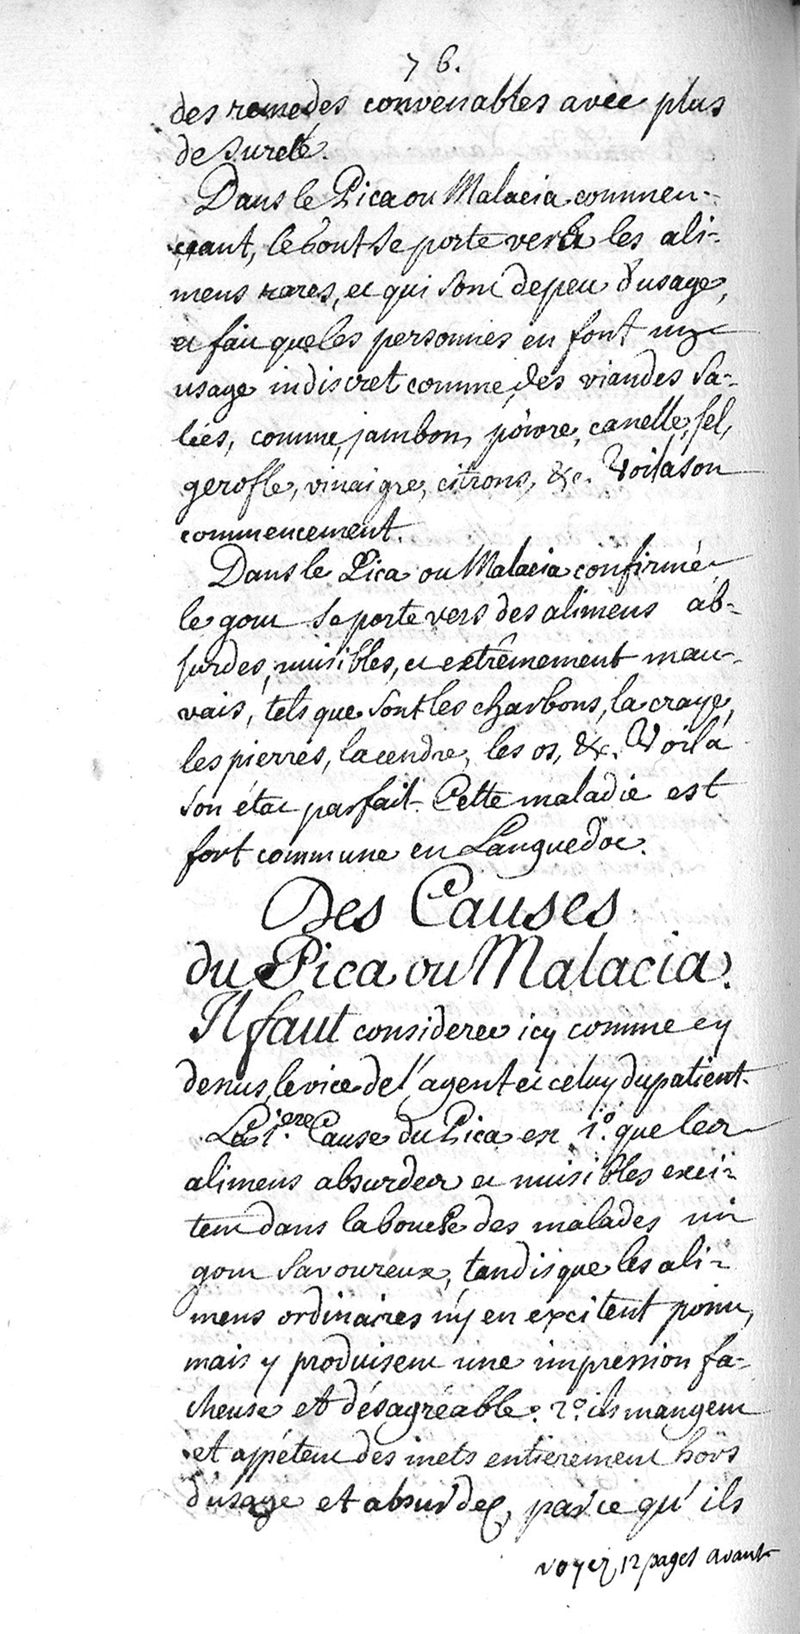 76.
des remedes convenables avec plus
de sureté.
Dans le Pica ou Malacia commen-
çant, le gout se porte vers les ali-
mens rares, et qui sont de peu d'usage,
et fait que les personnes en font un
usage indiscret comme des viandes sa-
lées, comme jambon, poivre, canelle, sel,
gerofle, vinaigre, citrons, &c. Voila son
commencement.
Dans le Pica ou Malacia confirmé
le gout se porte vers des alimens ab-
surdes, nuisibles, et extrêmement mau-
vais, tels que sont les charbons, la craye,
les pierres, la cendre, les os, &c. Voila
son état parfait. Cette maladie est
fort commune en Languedoc.
Des Causes
du Pica ou Malacia.
Il faut considerer icy comme cy
devant le vice de l'agent et celuy du patient.
La 1.ere Cause du Pica est 1.o que les
alimens absurdes et nuisibles exci-
tent dans la bouche des malades un
gout savoureux, tandis que les ali-
mens ordinaires n'y en excitent point,
mais y produisent une impression fa-
cheuse et désagréable. 2.o ils mangent
et appétent des mets entierement hors
d'usage et absurdes, parce qu'ils
voyez 12 pages avant